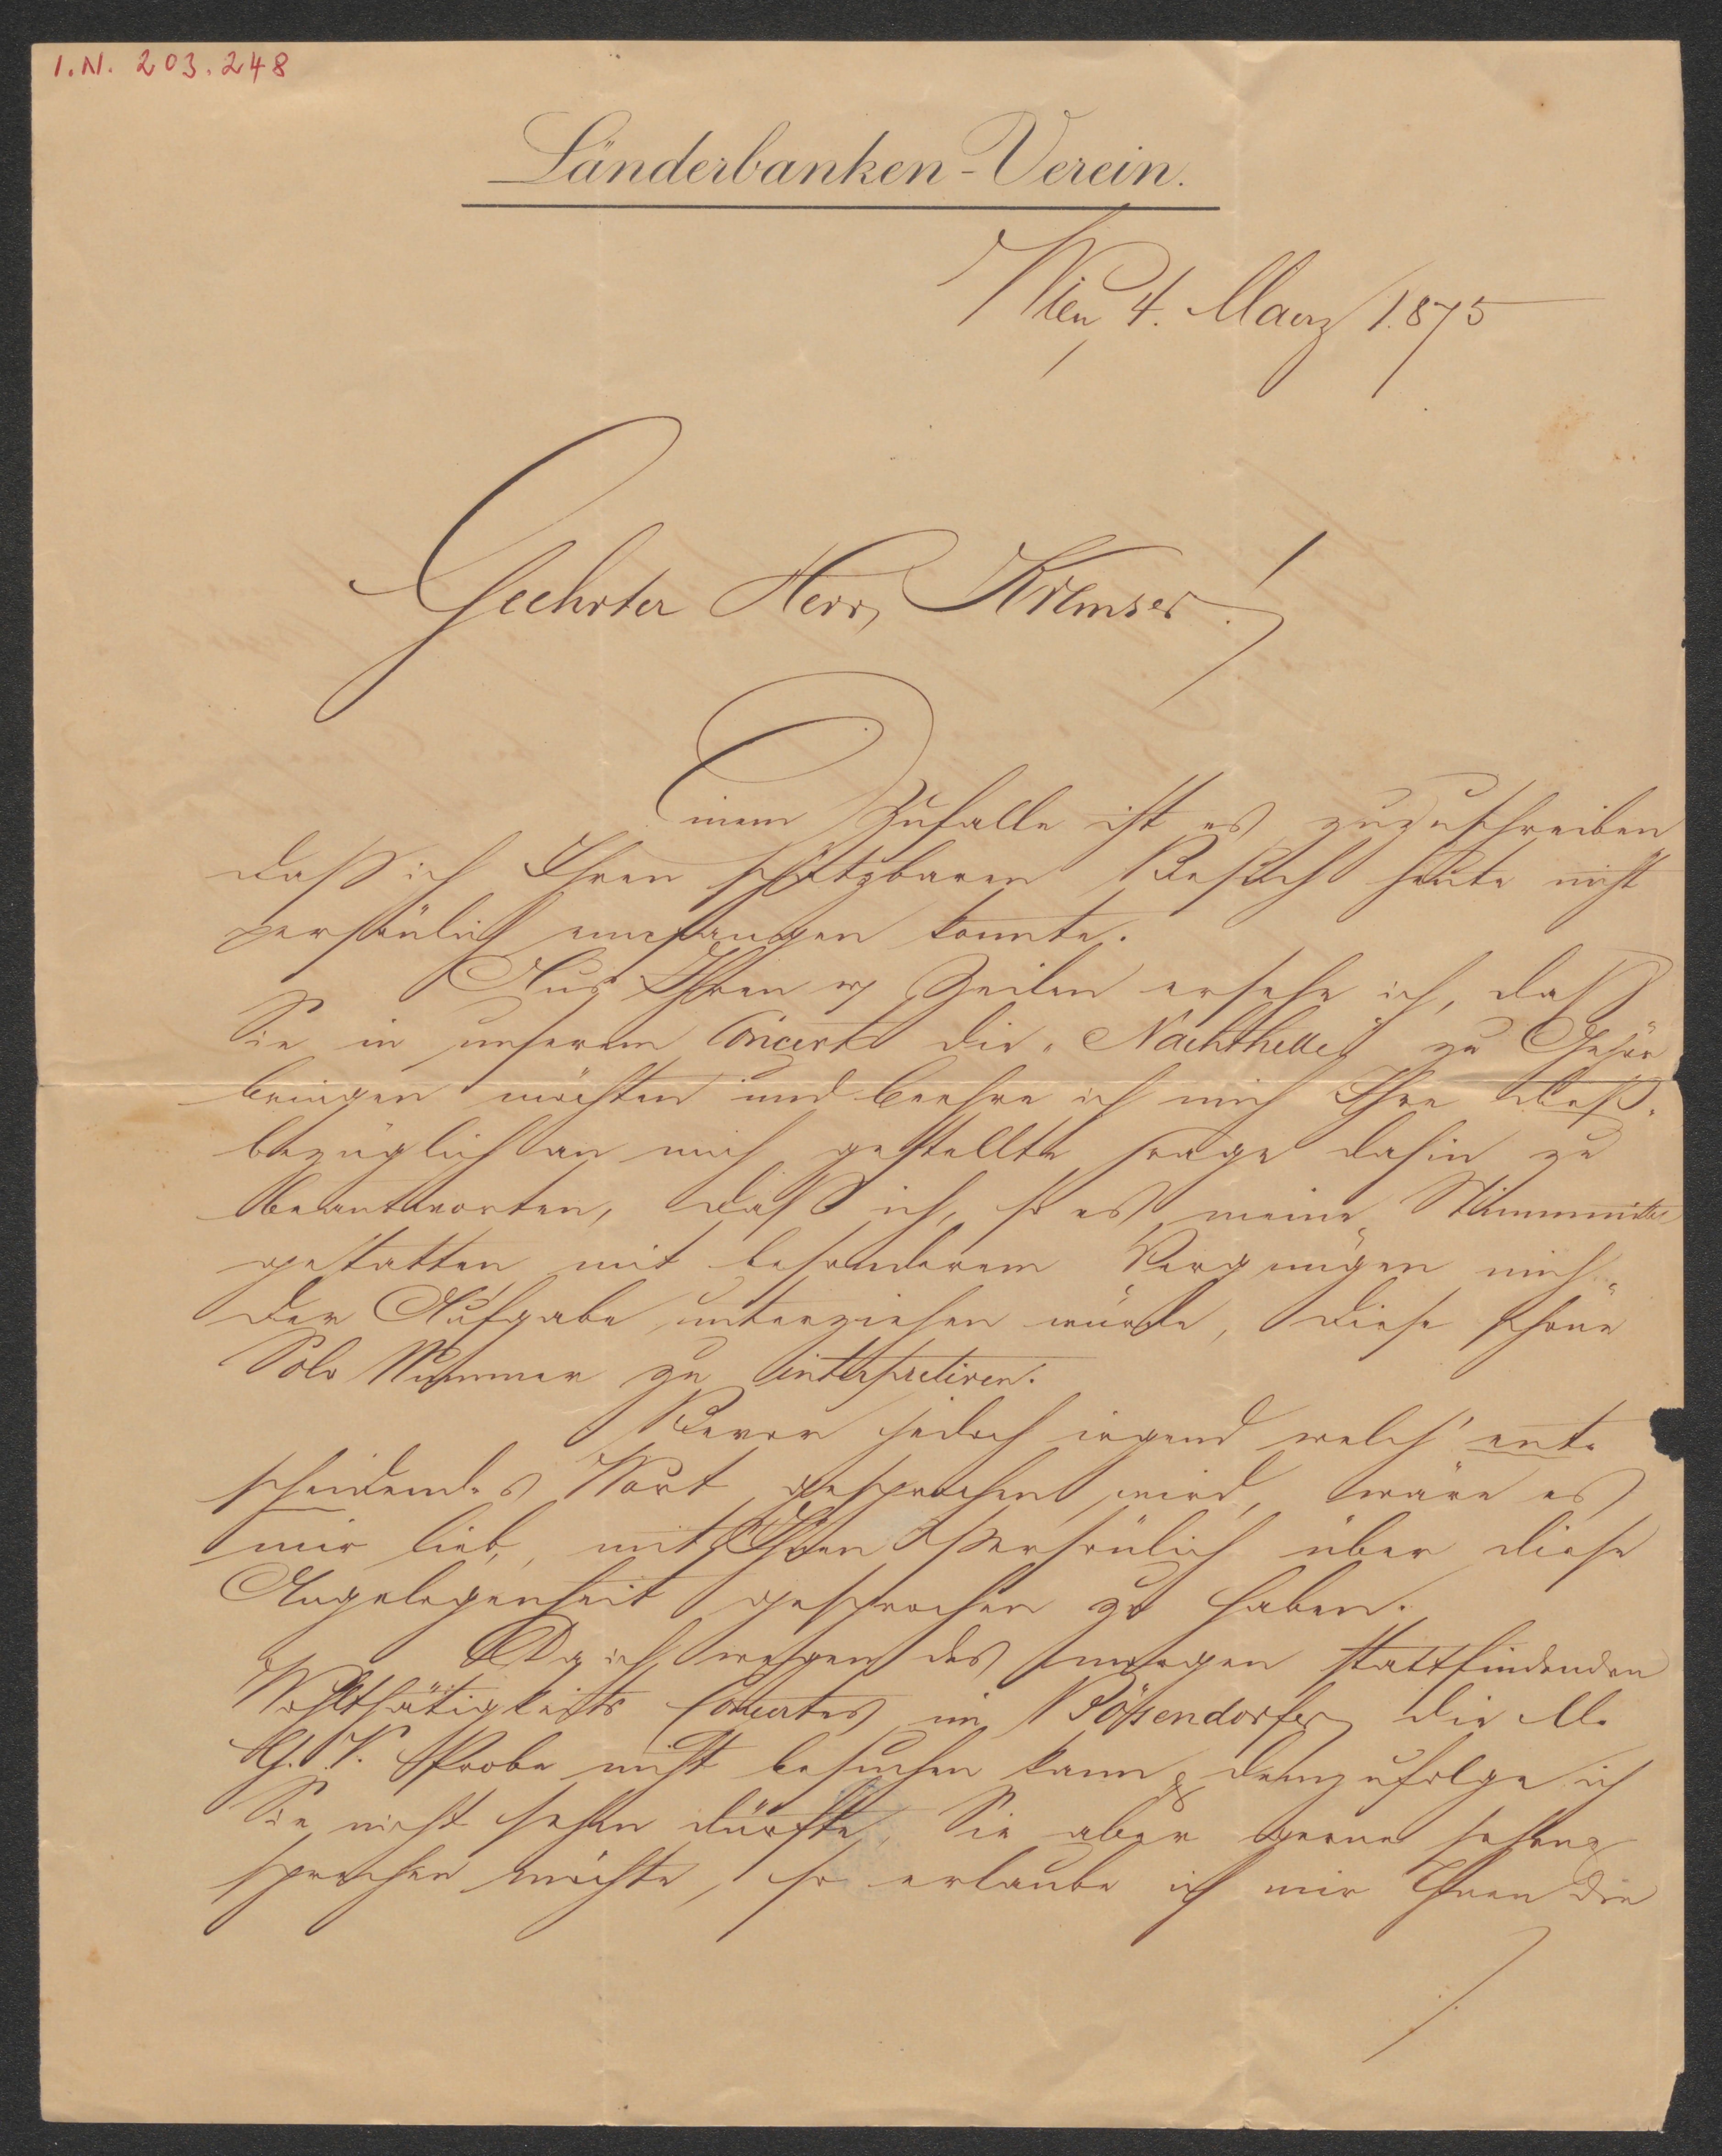 I.N. 203.248
Länderbanken-Verein.
Wien 4. Maerz 1.875
Geehrter Herr Kremser!
Einem Zufalle ist es zuzuschreiben
daß ich Ihren schätzbaren Besuch heute nicht
persönlich empfangen konnte.
Aus Ihren Zeilen ersehe ich, daß
Sie in unserem Concerte die „Nachthelle" zu Gehör
bringen möchten und beehre ich mich Ihre dieß-
bezüglich an mich gestellte Frage dahin zu
beantworten, daß ich, so es meine Stimmmittel
gestatten mit besonderem Vergnügen mich
der Aufgabe unterziehen würde, diese schöne
Solo Nummer zu interpretiren.
Bevor jedoch irgend welch' ent-
scheidendes Wort gesprochen wird, wäre es
mir lieb, mit Ihnen persönlich über diese
Angelegenheit gesprochen zu haben.
Da ich wegen des morgen stattfindenden
Wohlthätigkeits Concertes im Bösendorfer die M.
G. V. Probe nicht besuchen kann & demzufolge ich
Sie nicht sehen dürfte, Sie aber gerne sehen &
sprechen möchte, so erlaube ich mir Ihnen die